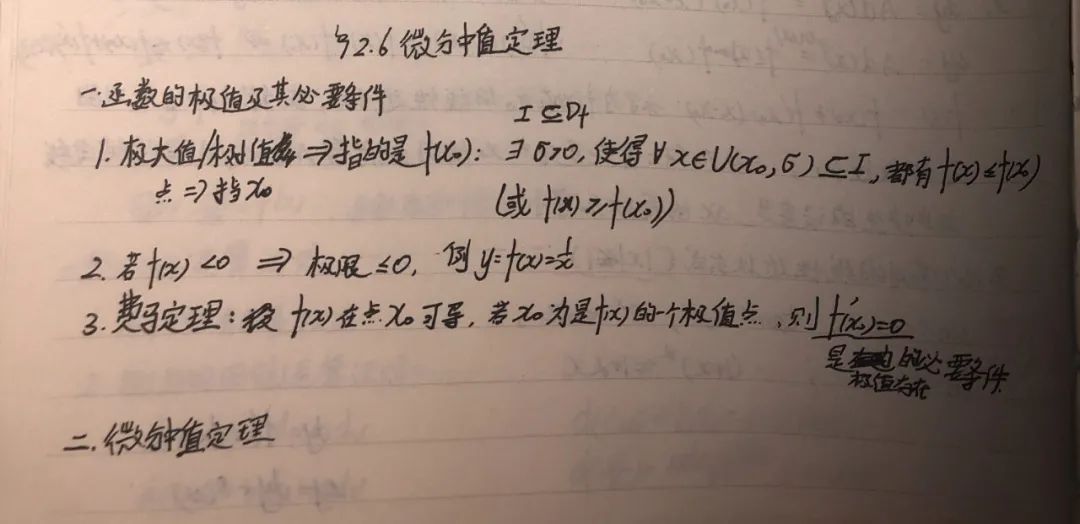 §2.6 微分中值定理
一.函数的极值及其必要条件
I ⊆ Df
1. 极大值/极小值 ⇒ 指的是 f(x₀): ∃ δ>0, 使得 ∀ x∈U(x₀, δ) ⊆ I, 都有 f(x) ≤ f(x₀)
点 ⇒ 指 x₀ (或 f(x) ≥ f(x₀))
2. 若 f(x) <0 ⇒ 极限 ≤0, 例 y=f(x)=1/x
3. 费马定理: 设 f(x) 在点 x₀ 可导, 若 x₀ 为是 f(x) 的一个极值点, 则 f'(x₀)=0
是 的必要条件
极值存在
二. 微分中值定理